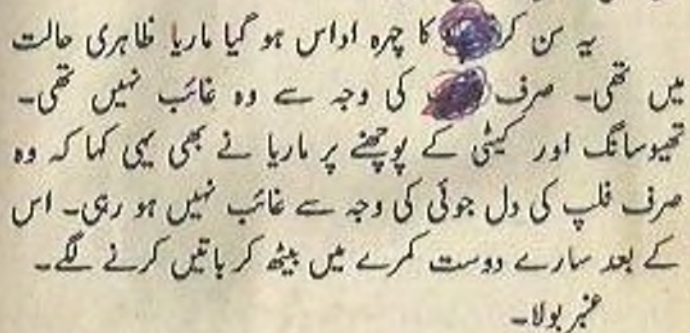 یہ سن کر کا چہرہ اداس ہو گیا ماریا ظاہری حالت
میں تھی۔ صرف کی وجہ سے وہ غائب نہیں تھی۔
تھیوسانگ اور کیٹی کے پوچھنے پر ماریا نے بھی یہی کہا کہ وہ
صرف فلپ کی دل جوئی کی وجہ سے غائب نہیں ہو رہی۔ اس
کے بعد سارے دوست کمرے میں بیٹھ کر باتیں کرنے لگے۔
عنبر بولا۔